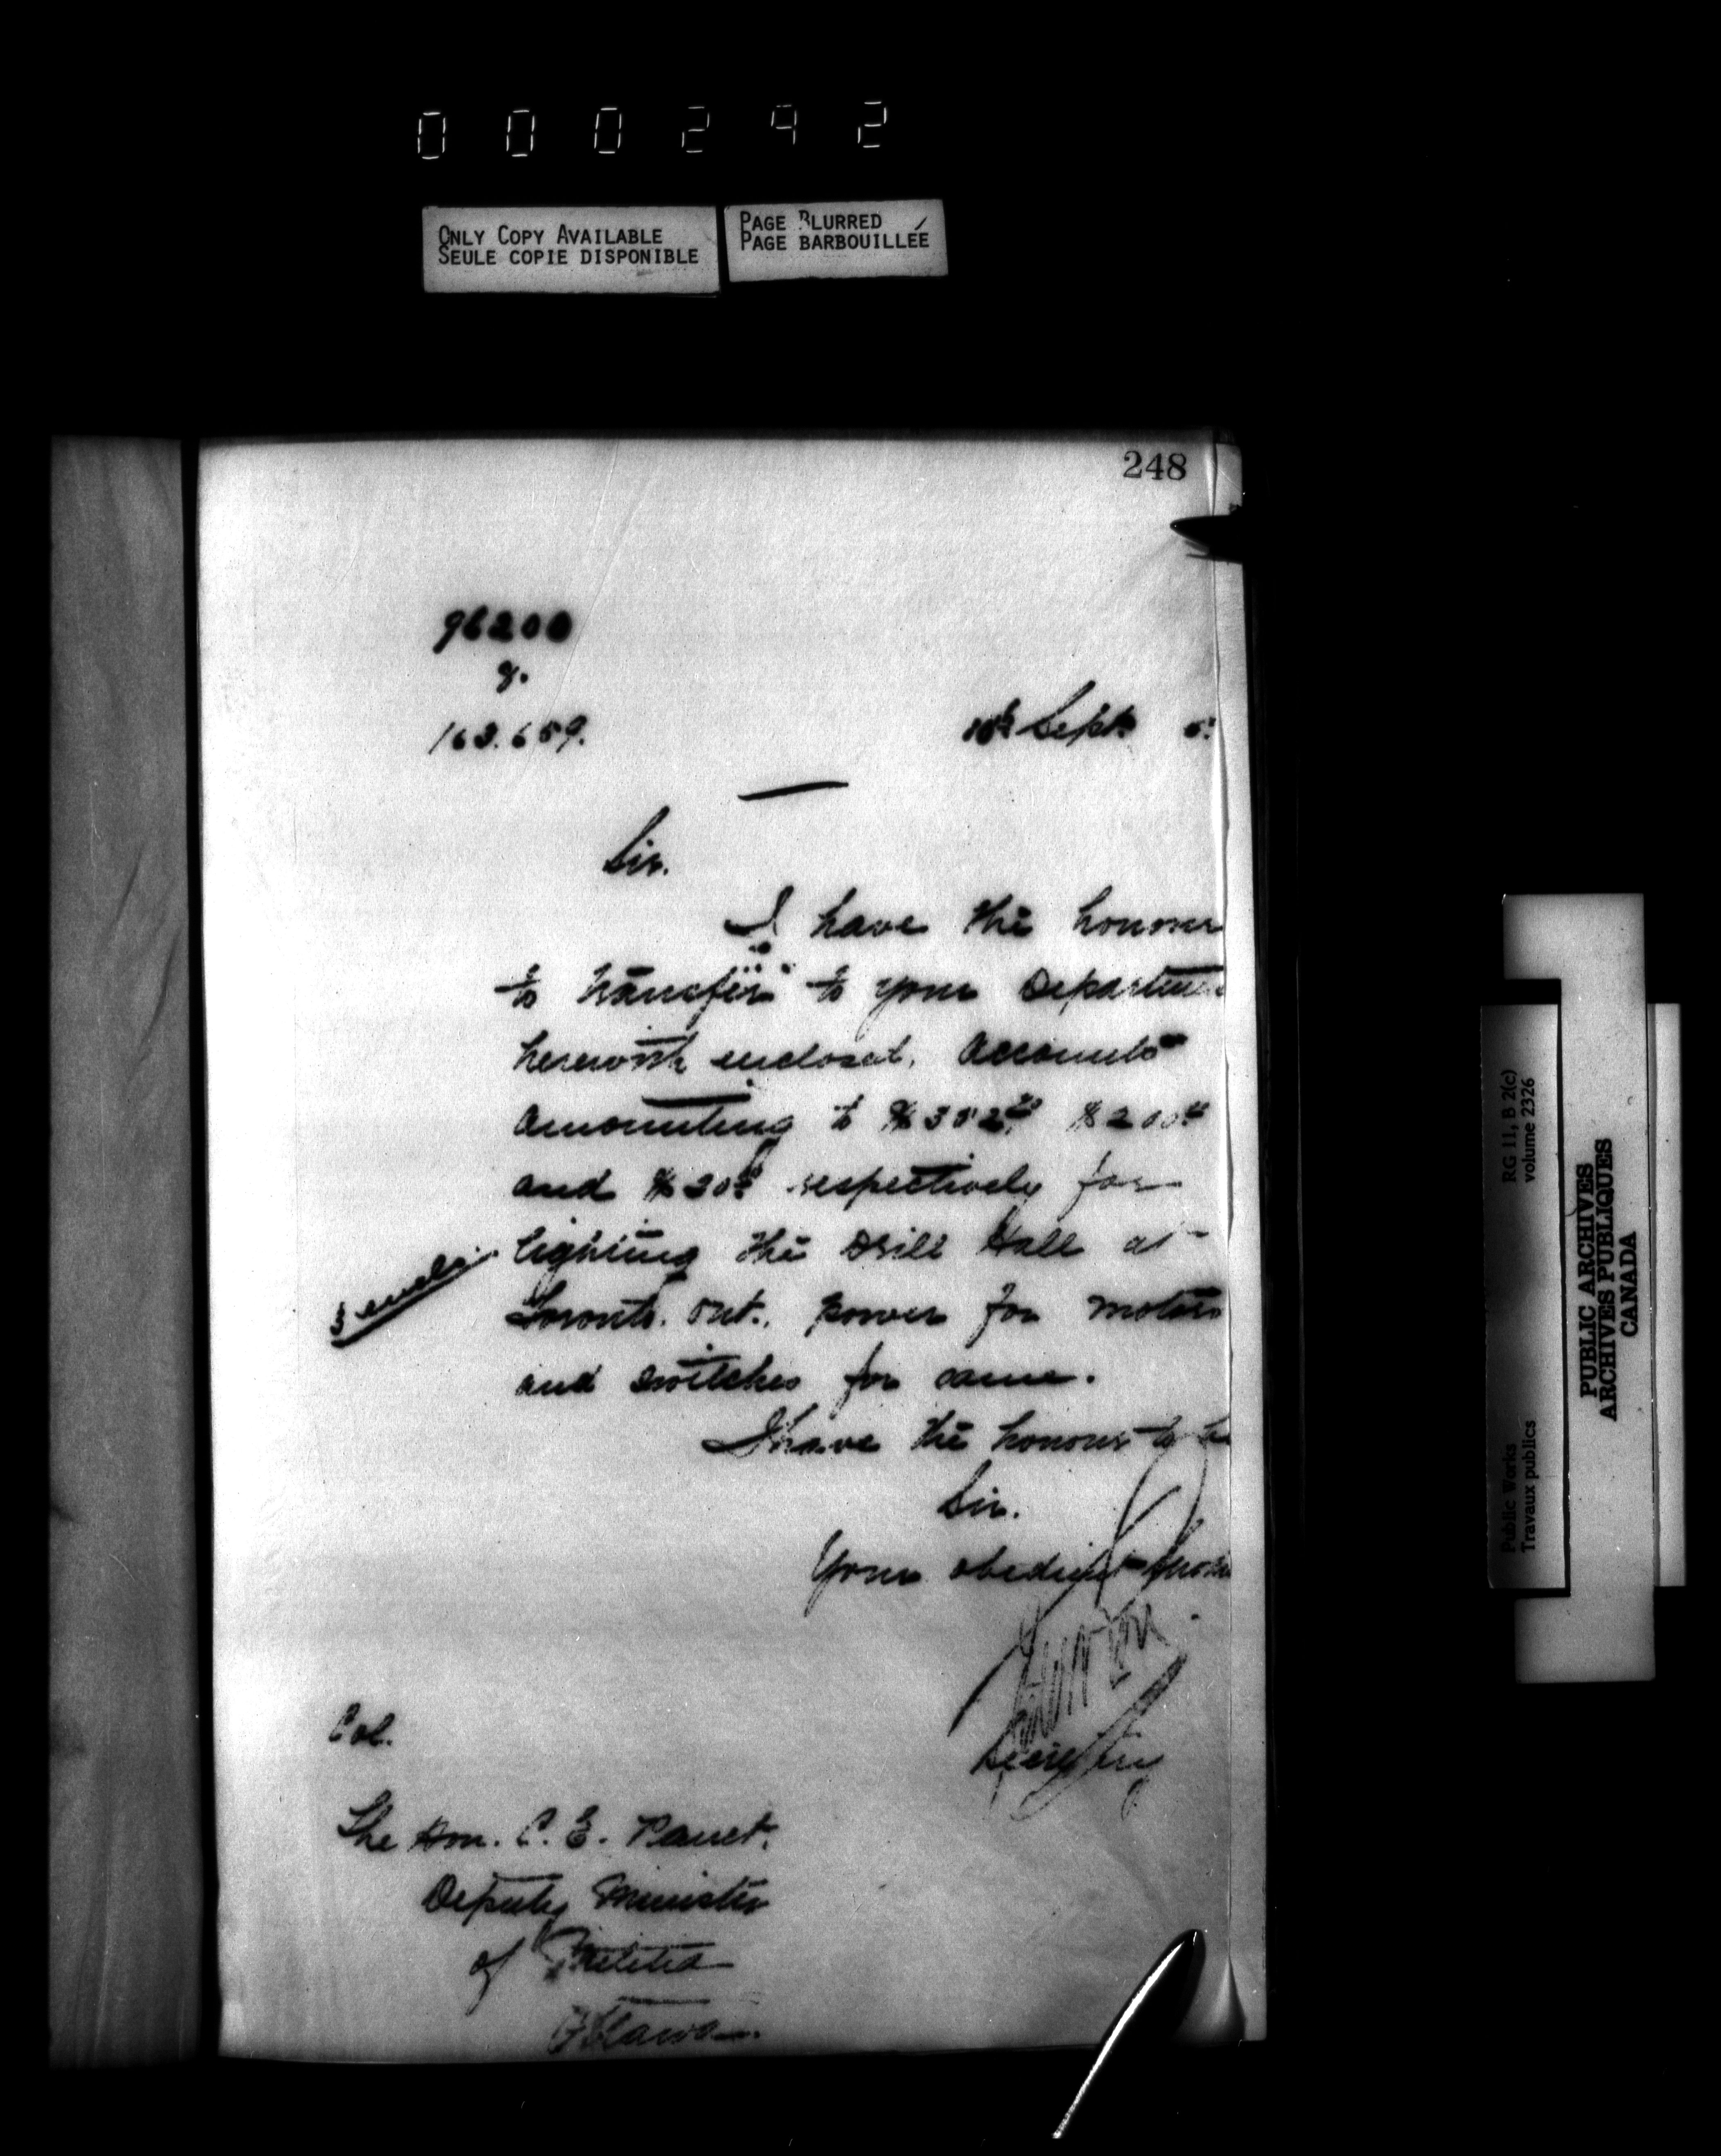 000242
ONLY COPY AVAILABLE
SEULE COPIE DISPONIBLE
PAGE BLURRED
PAGE BARBOUILLÉE
248
96200
163.659.
Sept.
Sir.
I have the honour
to transfer to your Department
herewith enclosed, accounts
amounting to
and respectively for
3 encls.
lighting the Drill Hall at
Toronto. Ont., power for motors
and switches for same.
I have the honour to be
Sir.
Your obedient
Secretary
Col.
The Hon. C. E. Panet.
Deputy Minister
of Militia
Ottawa.
RG 11, B 2(c)
volume 2326
Public Works
Travaux publics
PUBLIC ARCHIVES
ARCHIVES PUBLIQUES
CANADA